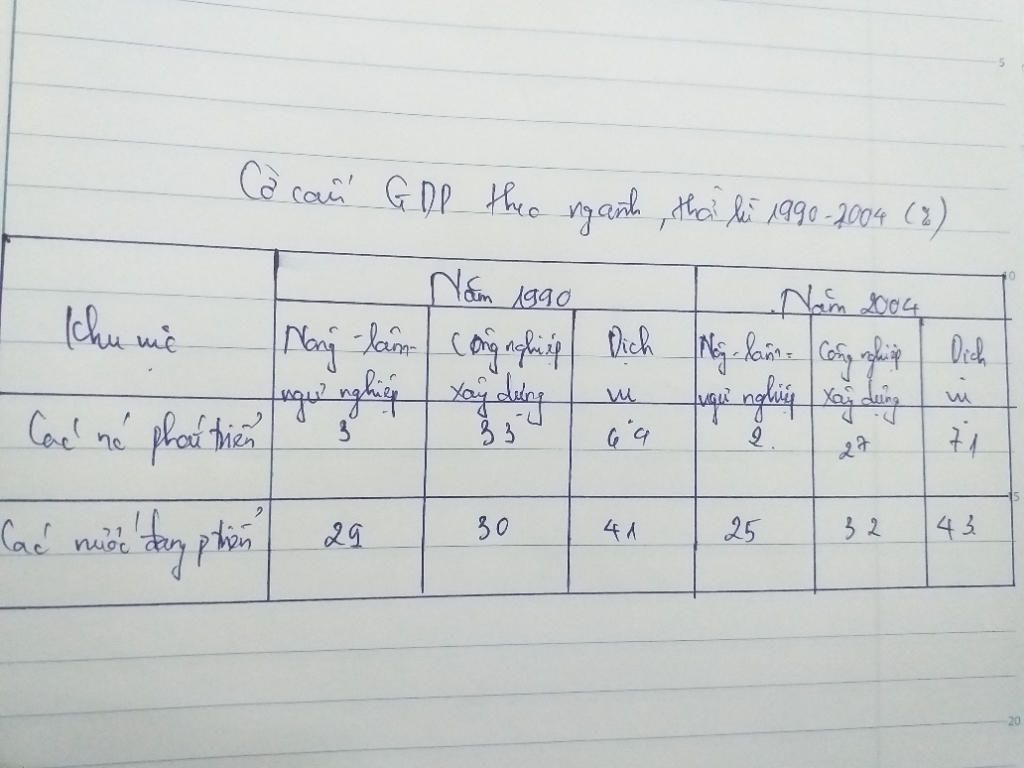 Cơ cấu GDP theo ngành, thời kì 1990-2004 (%)
Khu vực Năm 1990 Năm 2004
Nông-lâm- Công nghiệp Dịch Nông-lâm- Công nghiệp Dịch
ngư nghiệp xây dựng vụ ngư nghiệp xây dựng vụ
Các nc phát triển 3 33 64 2 27 71
Các nước đang ptriển 29 30 41 25 32 43
5
10
15
20